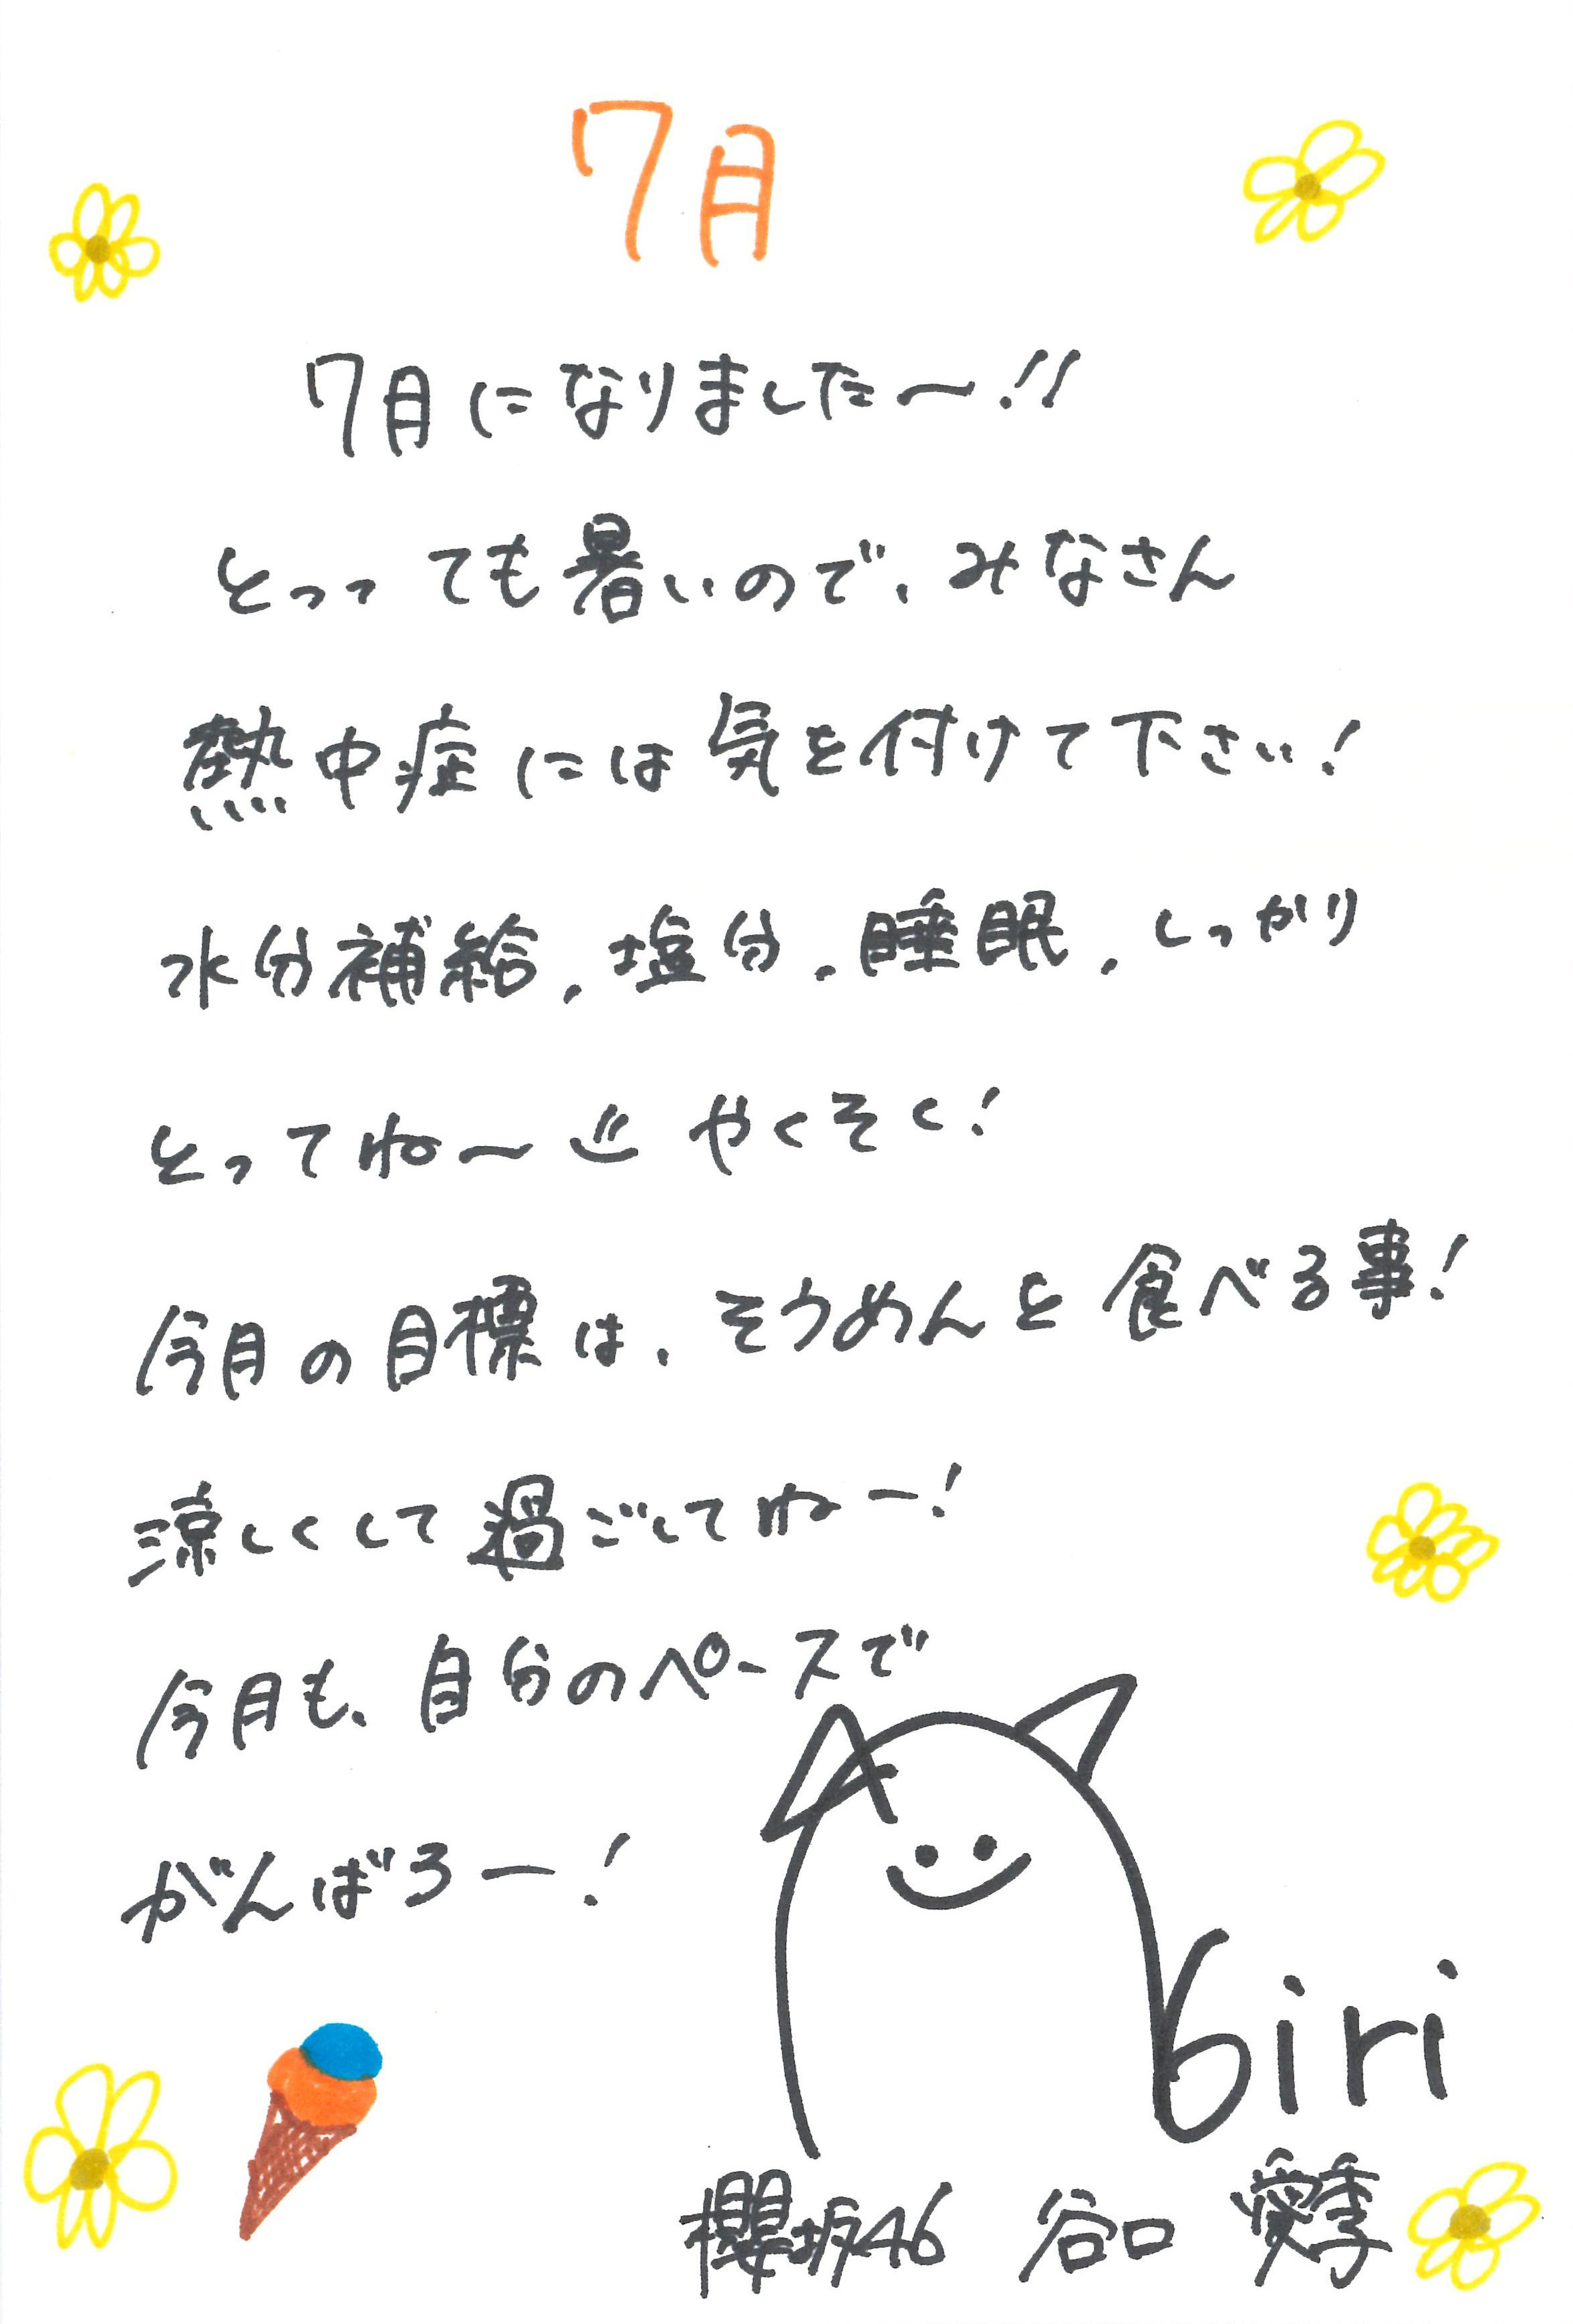 7月
7月になりました〜!!
とっっても暑いので、みなさん
熱中症には気を付けて下さい!
水分補給、塩分、睡眠、しっかり
とってね〜 やくそく!
今月の目標は、そうめんを食べる事!
涼しくして過ごしてねー!
今月も、自分のペースで
がんばろー!
Airi
櫻坂46 谷口 愛季